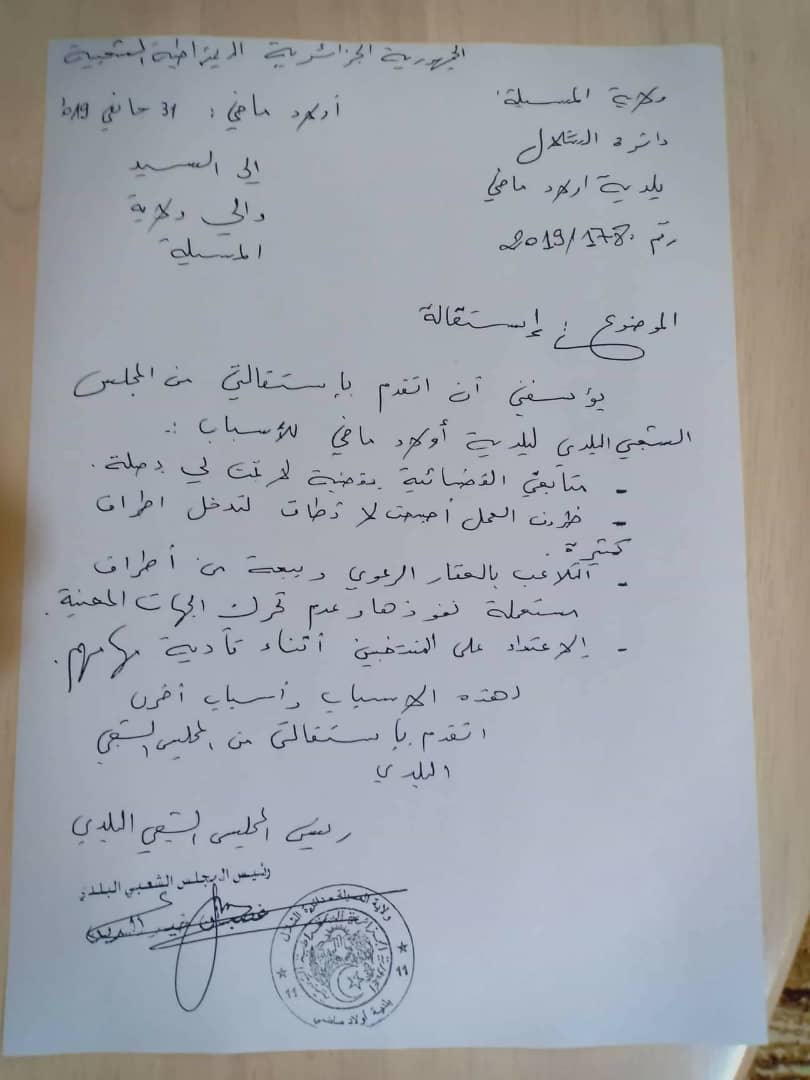 الجمهورية الجزائرية الديمقراطية الشعبية
ولاية المسيلة:
أولاد ماضي: 31 جانفي 2019
دائرة الشلال
إلى السيد
بلدية اولاد ماضي
والي ولاية
رقم 178/2019
المسيلة
الموضوع: إستقالة
يؤسفني أن اتقدم بإستقالتي من المجلس
الشعبي البلدي لبلدية أولاد ماضي للأسباب :
- متابعتي القضائية بقضية لا تمت لي بصلة.
- ظروف العمل أصبحت لا تطاق لتدخل اطراف
كثيرة.
- التلاعب بالعقار الرعوي وبيعه من أطراف
مستعملة نفوذها وعدم تحرك الجهات المعنية.
- الإعتداء على المنتخبين أثناء تأدية مهامهم.
لهذه الاسباب وأسباب أخرى
اتقدم بإستقالتي من المجلس الشعبي
البلدي
رئيس المجلس الشعبي البلدي
رئيس المجلس الشعبي البلدي
ولاية المسيلة دائرة الشلال
بلدية أولاد ماضي
11
11